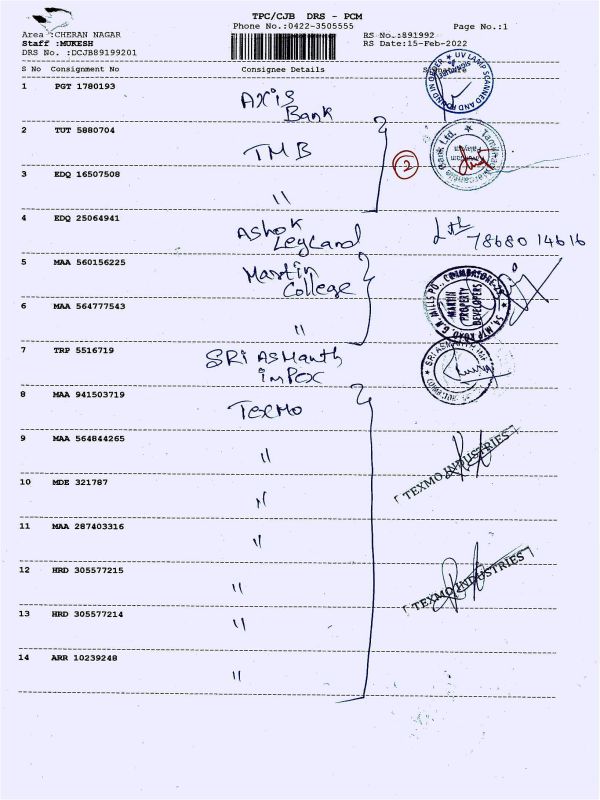 TPC/CJB DRS - PCM
Phone No.:0422-3505555
Page No.:1
Area :CHERAN NAGAR
RS No.:891992
Staff :MUKESH
RS Date:15-Feb-2022
DRS No. :DCJB89199201
S No Consignment No Consignee Details Signature
UV LAMP SCANNED AND FOUND IN ORDER
1 PGT 1780193 Axis Bank
2 TUT 5880704 TMB
Tamilnad Mercantile Bank Ltd.
2
3 EDQ 16507508 "
4 EDQ 25064941 Ashok Leyland
78680 14616
5 MAA 560156225 Martin College
MARTIN PROPERTY DEVELOPERS
54, MTP ROAD, G.N. MILLS PO., COIMBATORE-29
6 MAA 564777543 "
7 TRP 5516719 SRi AsManth imPex
SRI ASMANTH
8 MAA 941503719 TexMo
9 MAA 564844265 "
TEXMO INDUSTRIES
10 MDE 321787 "
11 MAA 287403316 "
12 HRD 305577215 "
TEXMO INDUSTRIES
13 HRD 305577214 "
14 ARR 10239248 "